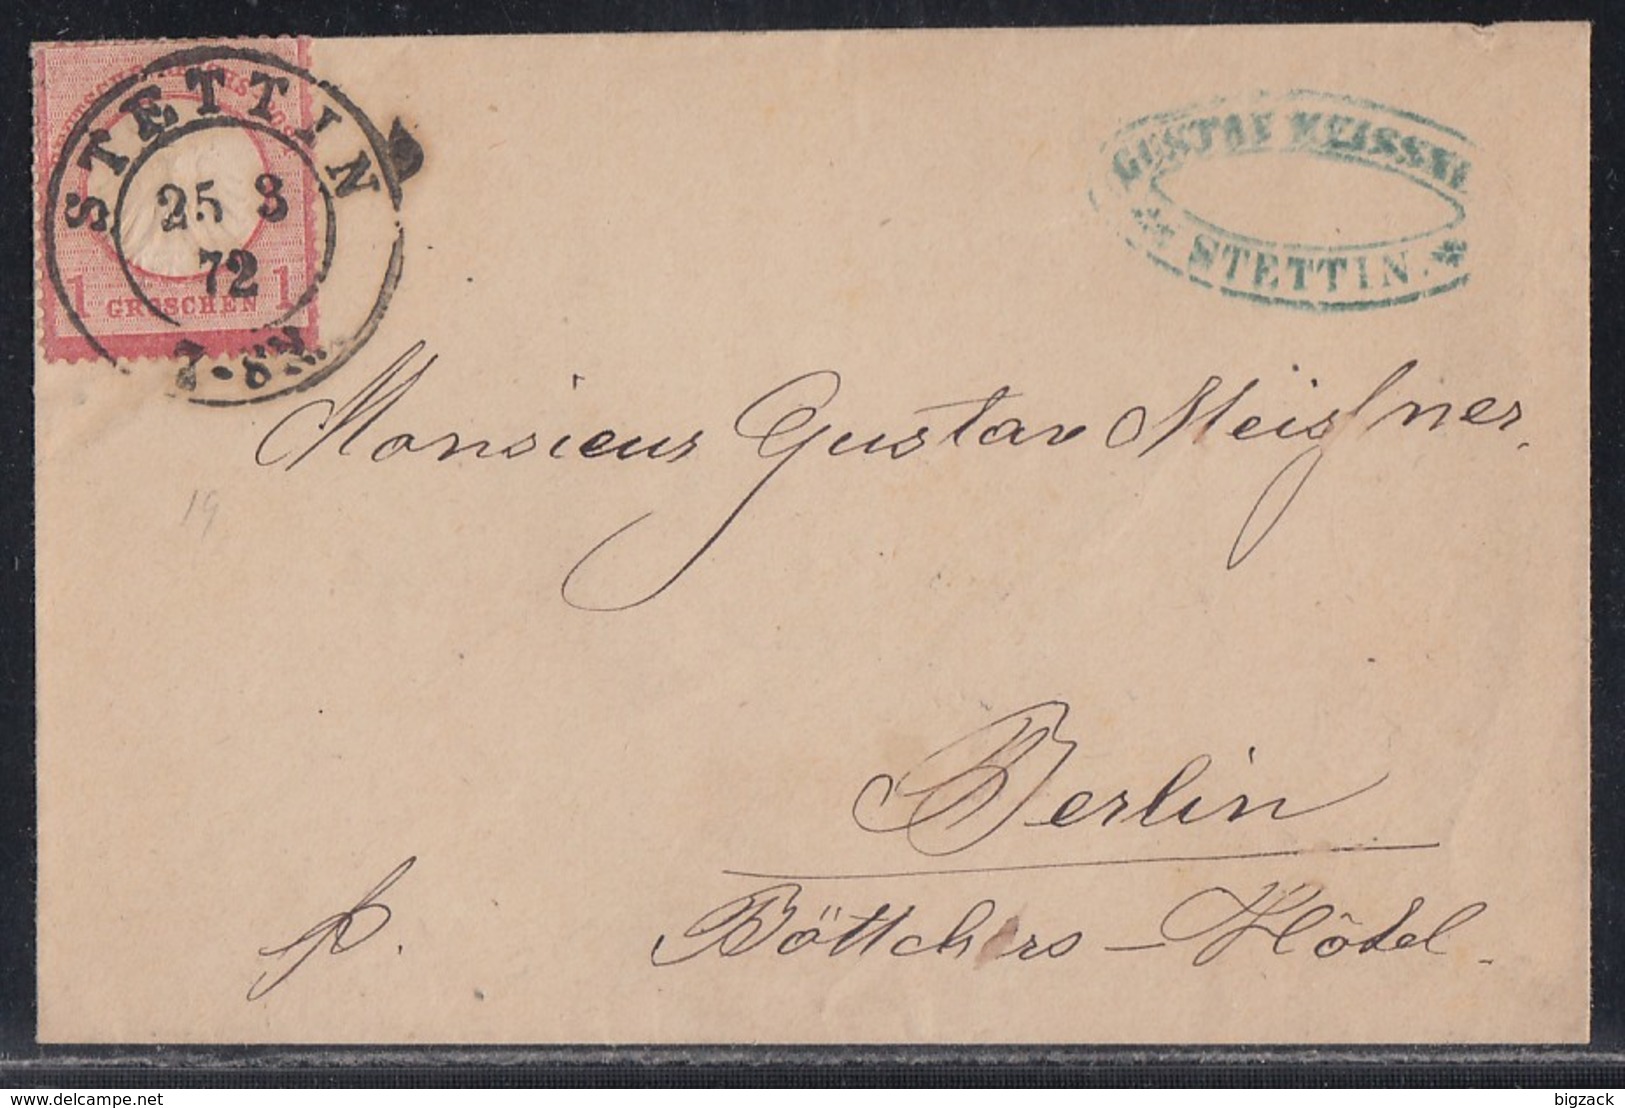 DEUTSCHE REICHS POST
STETTIN
25 3
72
7-8 N.
1 GROSCHEN 1
GUSTAV MEISSNE
STETTIN.
Monsieur Gustav Meißner.
19
Berlin
p.
Böttchers-Hôtel.
delcampe.net
bigzack